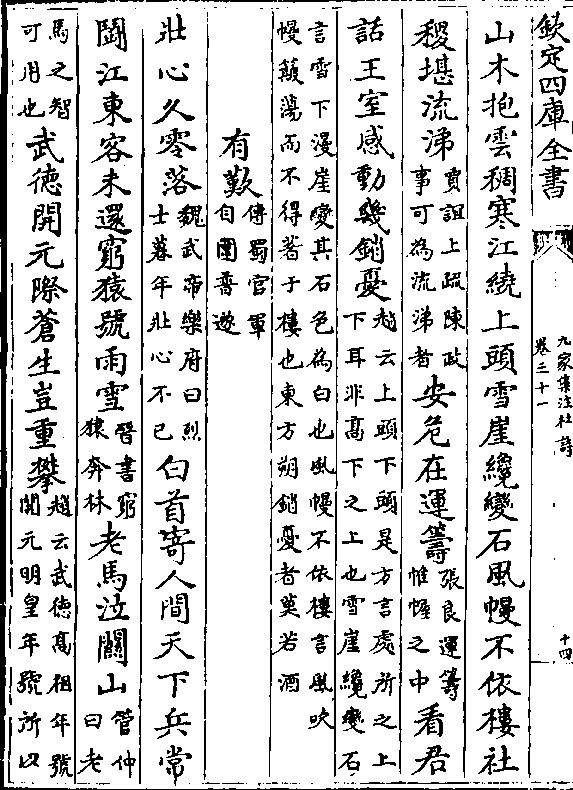 欽定四庫全書
九家集注杜詩
卷三十一
十四
山木抱雲稠寒江繞上頭雪崖纔變石風幔不依樓社
稷堪流涕賈誼上疏陳政事可為流涕者安危在運籌張良運籌惟幄之中看君
話王室感動幾銷憂趙云上頭下頭是方言處所之上下耳非髙下之上也雪崖纔變石
言雪下漫崖變其石色為白也風幔不依樓言風吹
幔簸蕩而不得著于樓也東方朔銷憂者莫若酒
有歎傳蜀官軍自圍普遂
壯心久零落魏武帝樂府曰烈士暮年壯心不已白首寄人間天下兵常
鬭江東客未還窮猿號雨雪晉書窮猿奔林老馬泣關山管仲曰老
馬之智可用也武德開元際蒼生豈重攀趙云武德髙祖年號開元明皇年號所以